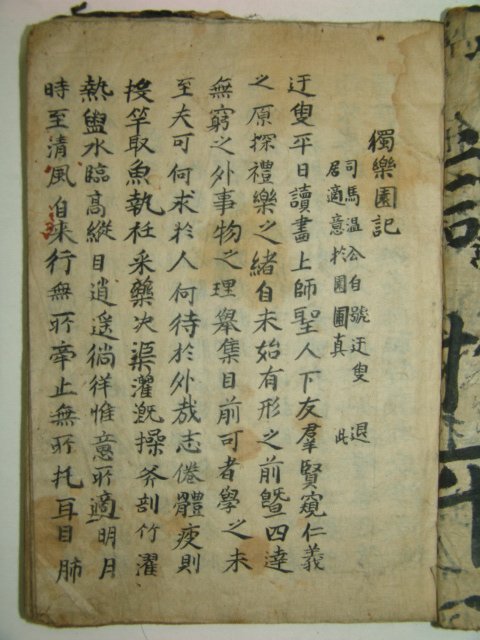 獨樂園記
司馬溫公自號迂叟 退
居適意於園圃真 此
迂叟平日讀書上師聖人下友羣賢窺仁義
之原探禮樂之緒自未始有形之前曁四達
無窮之外事物之理舉集目前可者學之未
至夫可何求於人何待於外哉志倦體疲則
投竿取魚執衽采藥决渠濯旣操斧剖竹濯
熱盥水臨高縱目逍遥徜徉惟意所適明月
時至清風自来行無所牽止無所托耳目肺